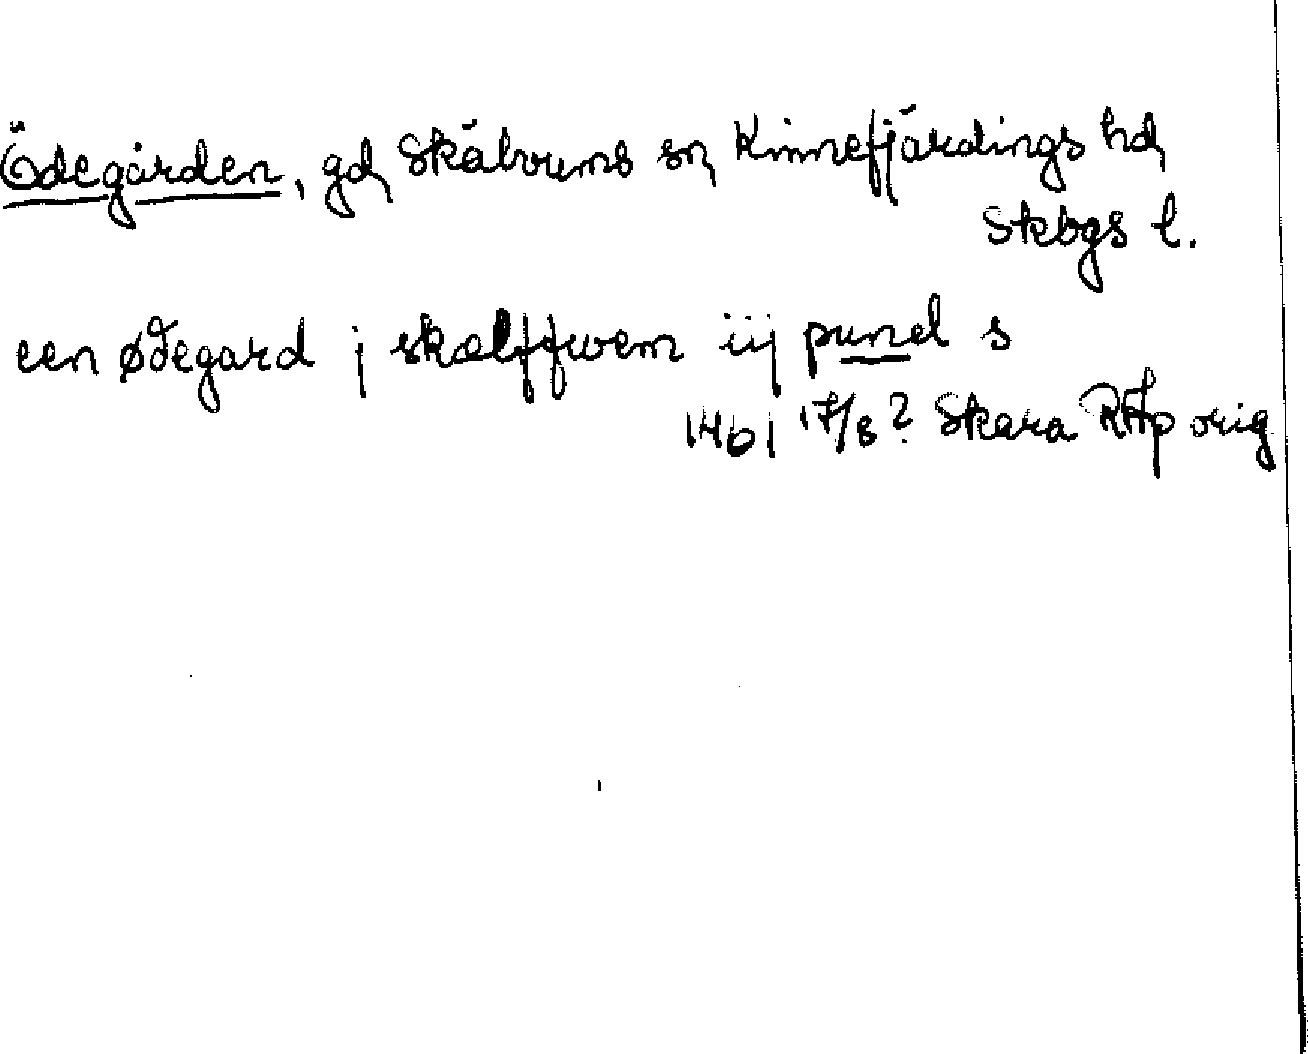 Ödegården, gd, Skälvums sn, Kinnefjärdings hd,
Skbgs l.
een ødegard j skælffwem iij pund s
1461 17/8? Skara RAp orig